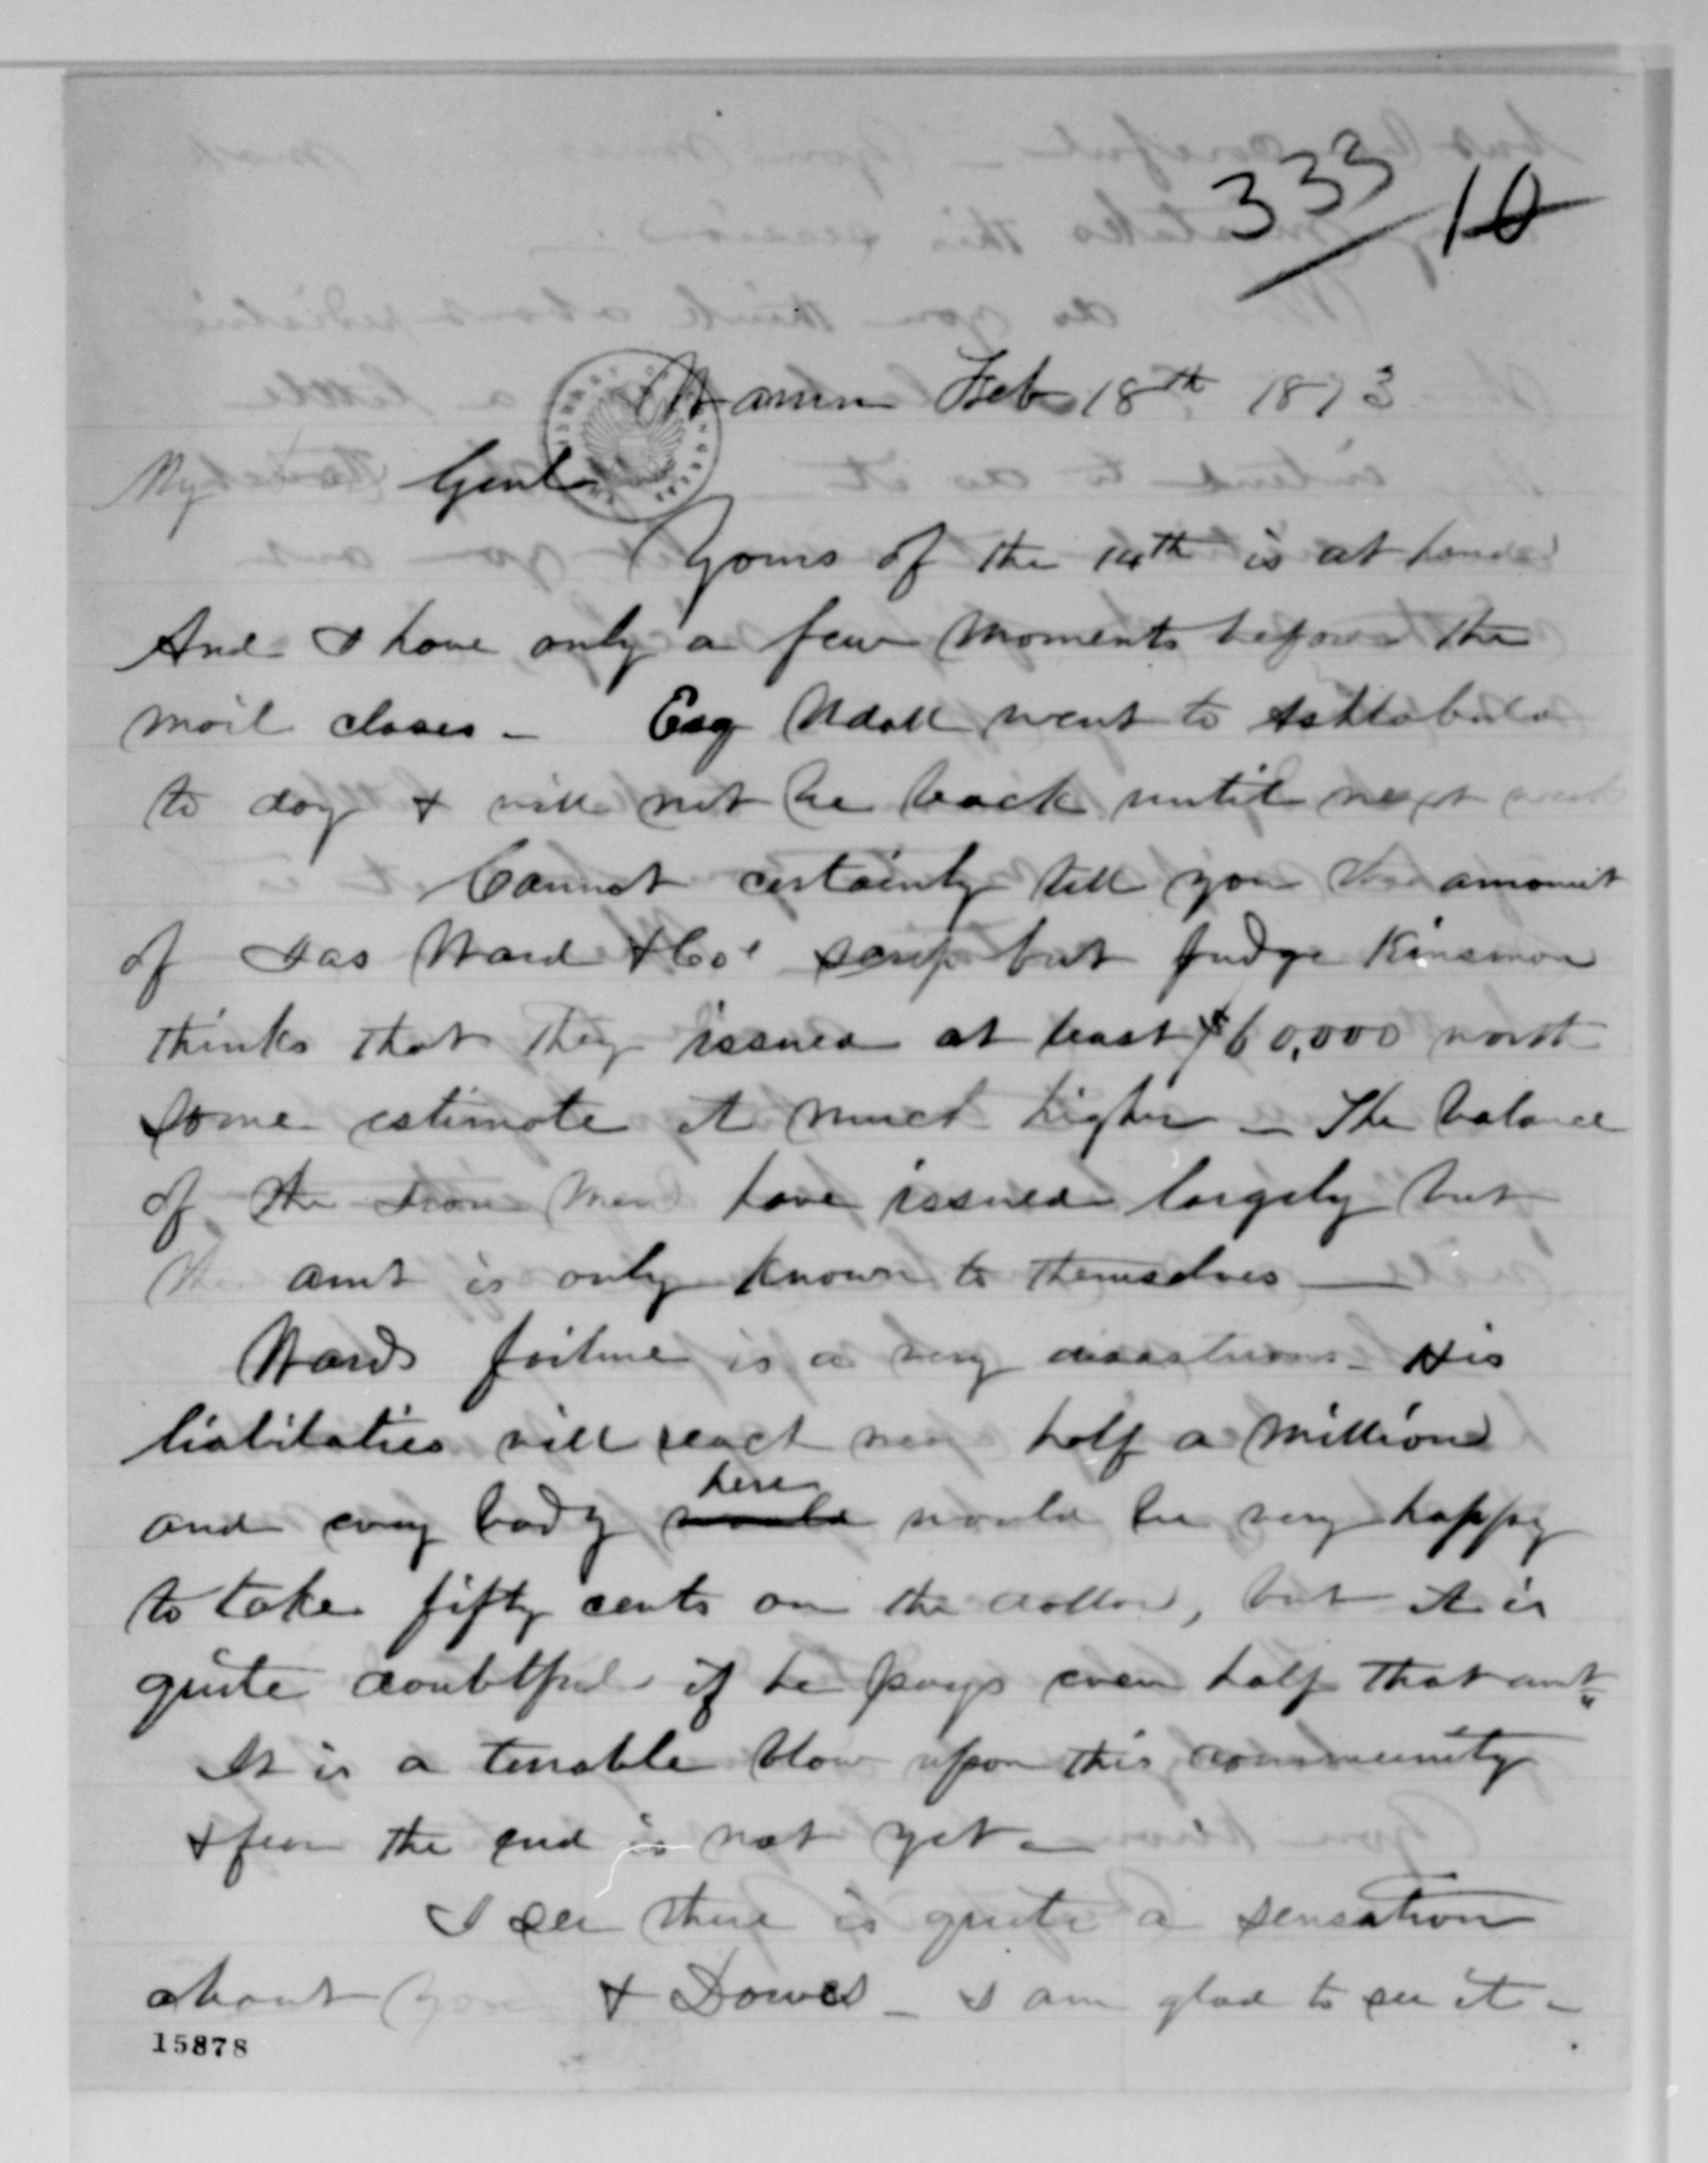 333/10
Warren Feb 18th 1873
My Genl
Yours of the 14th is at hand
And I have only a few moments before the
mail closes - Esq Udall went to Ashtabula
to day & will not be back until next week
Cannot certainly tell you the amount
of Jas Ward & Co's scrip but Judge Kinsman
thinks that they issued at least $60,000 worth
some estimate it much higher - The balance
of the Iron Men have issued largely but
the amt is only known to themselves -
Wards failure is a very disastrous - His
liabilities will reach near half a million
and every body would here would be very happy
to take fifty cents on the dollar, but it is
quite doubtful if he pays even half that amt
It is a terrible blow upon this community
& fear the end is not yet -
I see there is quite a sensation
about you & Dawes - I am glad to see it -
15878